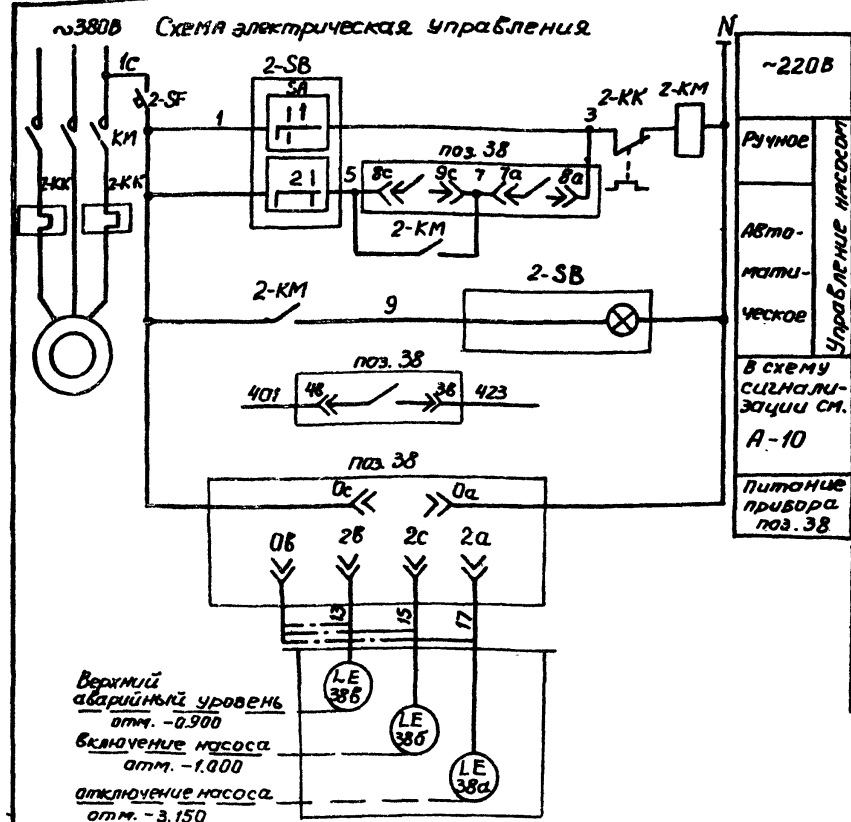 ~380В
Схема электрическая управления
N
1с
2-SF
2-SB
SA
1
1
2
КМ
2-КК
2-КК
3
2-КК
2-КМ
поз. 38
5
8с
9с
7
7а
8а
2-КМ
2-КМ
9
2-SB
поз. 38
401
4в
3в
423
поз. 38
0с
0а
0в
2в
2с
2а
13
15
17
LE
38в
LE
38б
LE
38а
Верхний
аварийный уровень
отм. -0.900
включение насоса
отм. -1.000
отключение насоса
отм. -3.150
~220В
Ручное
Авто-
мати-
ческое
Управление насосом
В схему
сигнали-
зации см.
А-10
Питание
прибора
поз. 38